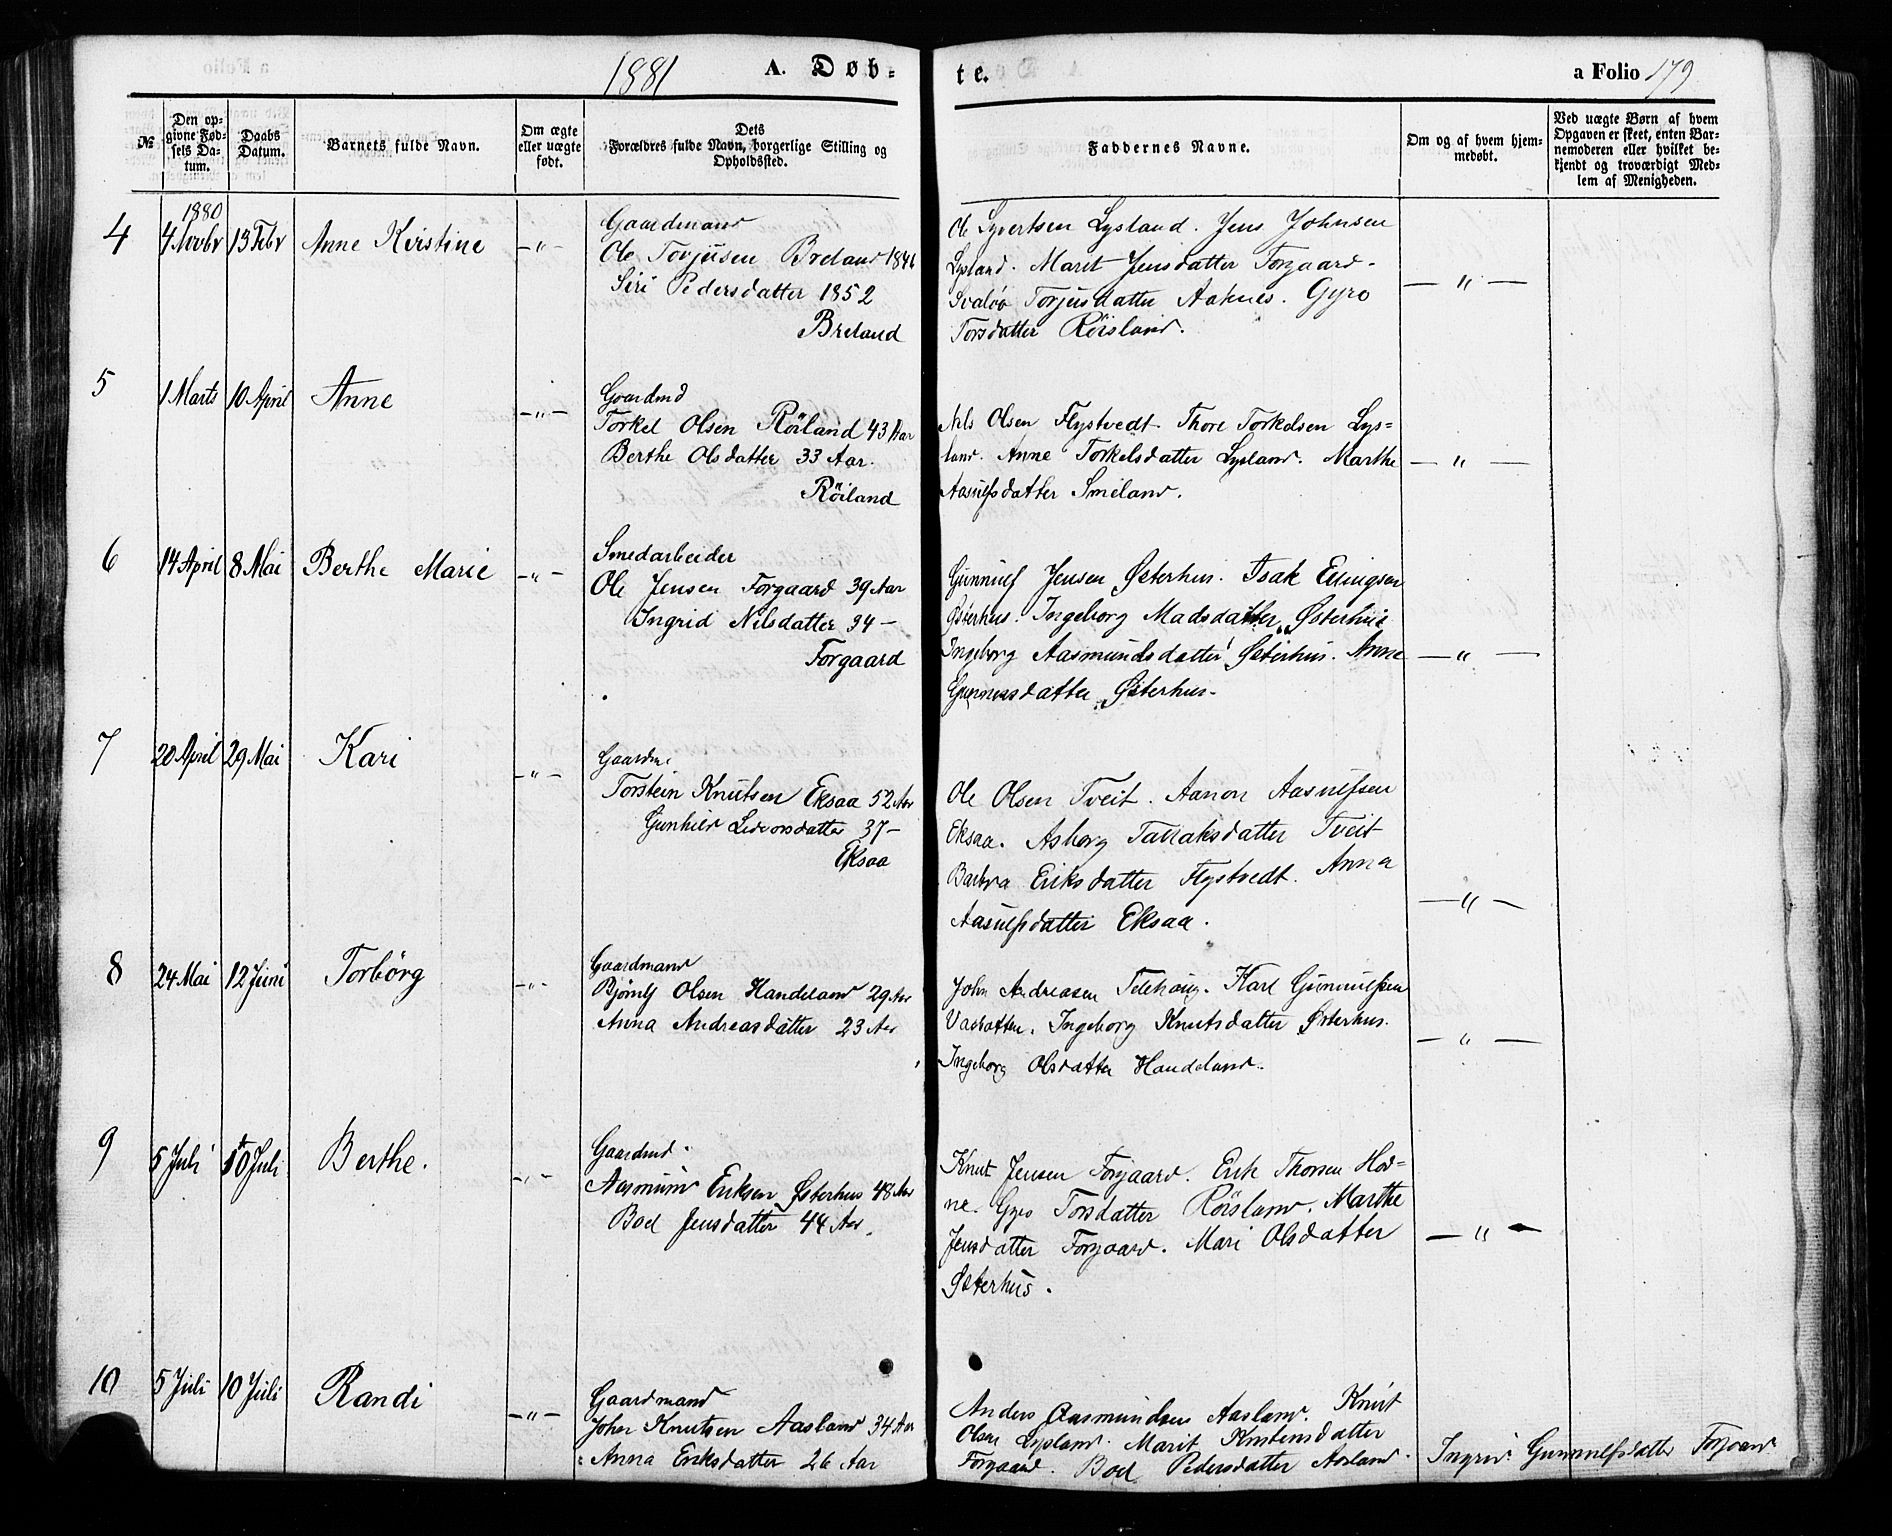 1881 A. Døb-
te. a Folio 179
№
Den op-
givne Fød-
sels Da-
tum.
Daabs
Datum.
Barnets fulde Navn.
Om ægte
eller uægte
født.
Dets
Forældres fulde Navn, borgerlige Stilling og
Opholdssted.
Faddernes Navne.
Om og af hvem hjem-
medøbt.
Ved uægte Børn af hvem
Opgaven er skeet, enten Bar-
nemoderen eller hvilket be-
kjendt og troværdigt Med-
lem af Menigheden.
1880
4 4 Novbr 13 Febr Anne Kirstine —"—
Gaardmand
Ole Torjusen Breland 1846
Siri Pedersdatter 1852
Breland
Ole Syvertsen Lysland. Jens Johnsen
Lysland. Marit Jensdatter Forgaard.
Svaløv Torjusdatter Aaknes. Gyro
Torsdatter Röisland.
— " —
5 1 Marts 10 April Anne —"—
Gaardmd
Torkel Olsen Röiland 43 Aar
Berthe Olsdatter 33 Aar.
Röiland
Nils Olsen Flystvedt. Thore Torkelsen Lys=
land. Anne Torkelsdatter Lysland. Marthe
Aasulfsdatter Smeland.
— " —
6 14 April 8 Mai Berthe Marie —"—
Smedarbeider
Ole Jensen Forgaard 39 Aar
Ingrid Nilsdatter 34 —
Forgaard
Gunnulf Jensen Østerhus. Isak Ellingsen
Østerhus. Ingeborg Madsdatter Østerhus
Ingeborg Aasmundsdatter Østerhus. Anne
Østerhus.
— " —
7 20 April 29 Mai Kari —"—
Gaardm.
Torstein Knutsen Eksaa 52 Aar
Gunhild Ledvorsdatter 37 —
Eksaa
Ole Olsen Tveit. Aanon Aasulfsen
Eksaa. Asborg Tallaksdatter Tveit
Barbra Eriksdatter Flystvedt. Anna
Aasulfsdatter Eksaa.
— " —
8 24 Mai 12 Juni Torbörg —"—
Gaardmand
Bjönulf Olsen Handeland 29 Aar
Anna Andreasdatter 23 Aar
John Andreasen Telehaug. Karl Gunnulfsen
Ingeborg Knutsdatter Østerhus.
Ingeborg Olsdatter Handeland.
— " —
9 5 Juli 10 Juli Berthe. —"—
Gaardmd.
Aasmund Eriksen Østerhus 48 Aar
Boel Jensdatter 44 Aar.
Knut Jensen Forgaard. Erik Thorsen Hod=
ne. Gyro Torsdatter Röisland. Marthe
Jensdatter Forgaard. Mari Olsdatter
Østerhus.
— " —
10 5 Juli 10 Juli Randi —"—
Gaardmand
John Knutsen Aasland 34 Aar
Anna Eriksdatter 26 Aar
Anders Aasmundsen Aasland. Knut
Olsen Lysland. Marit Knutensdatter
Forgaard. Boel Pedersdatter Aasland.
Ingrid Gunnulfsdatter Forgaard